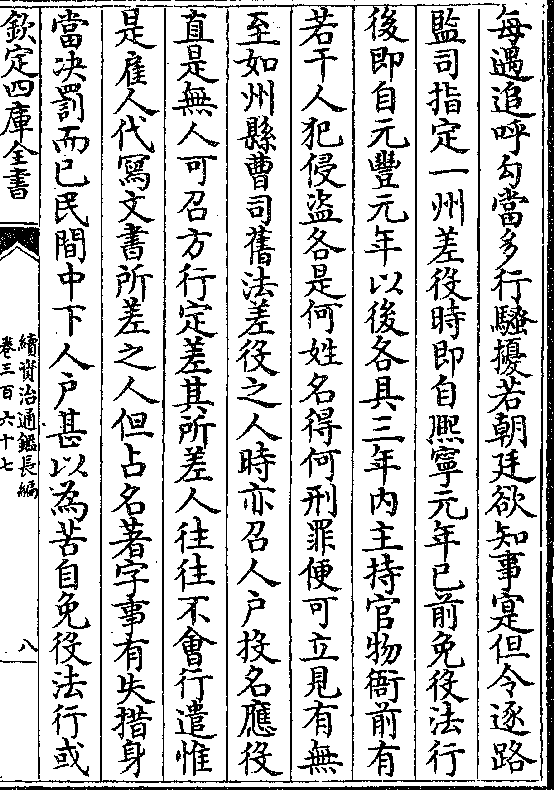 每遇追呼勾當多行騷擾若朝廷欲知事寔但令逐路
監司指定一州差役時即自熈寧元年已前免役法行
後即自元豐元年以後各具三年內主持官物衙前有
若干人犯侵盜各是何姓名得何刑罪便可立見有無
至如州縣曹司舊法差役之人時亦召人户投名應役
直是無人可召方行定差其所差人徃徃不會行遣惟
是雇人代寫文書所差之人但占名著字事有失措身
當决罰而已民間中下人户甚以為苦自免役法行或
欽定四庫全書
續資治通鑑長編
卷三百六十七
八